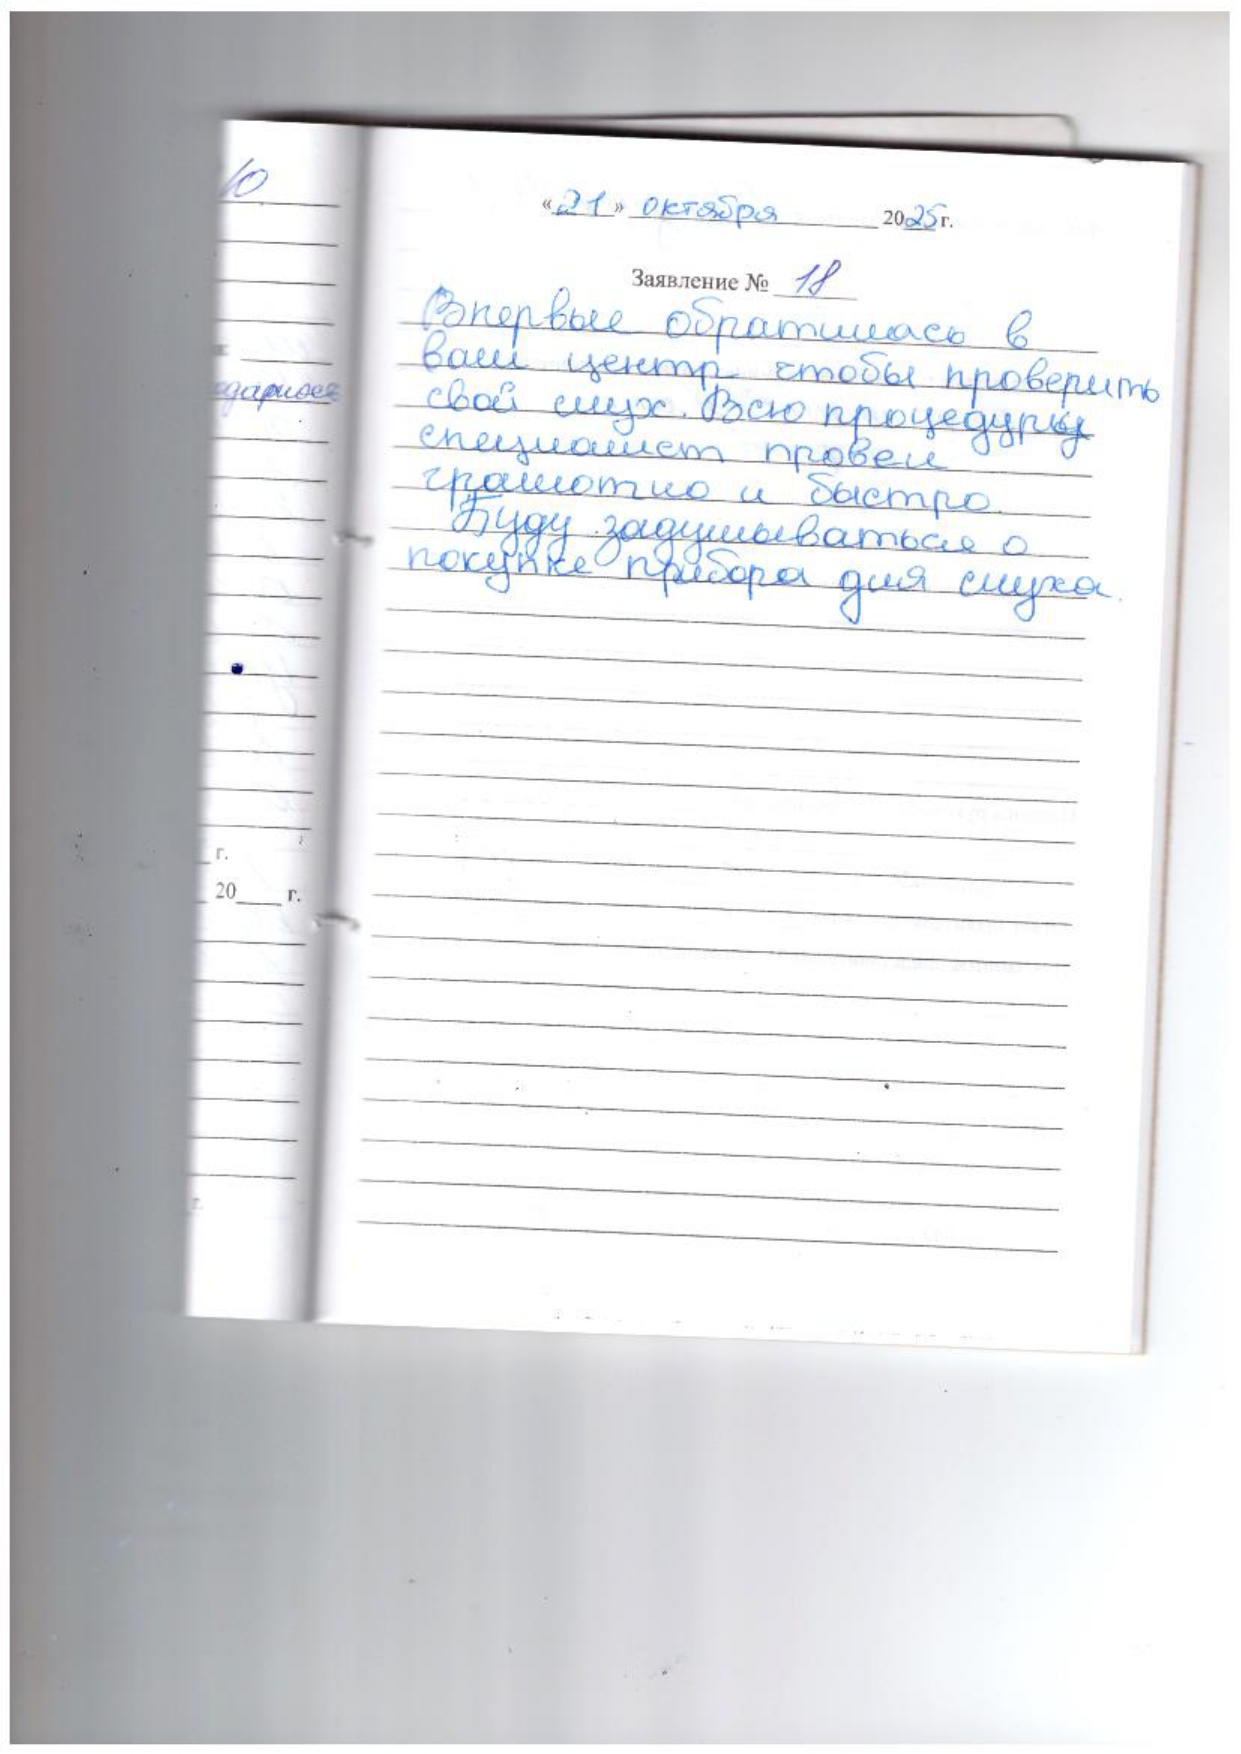 10
«21» октября 2025г.
Заявление № 18
Впервые обратилась в
ваш центр чтобы проверить
свой слух. Всю процедуру
специалист провел
грамотно и быстро.
Буду задумываться о
покупке прибора для слуха.
г.
20____ г.
г.